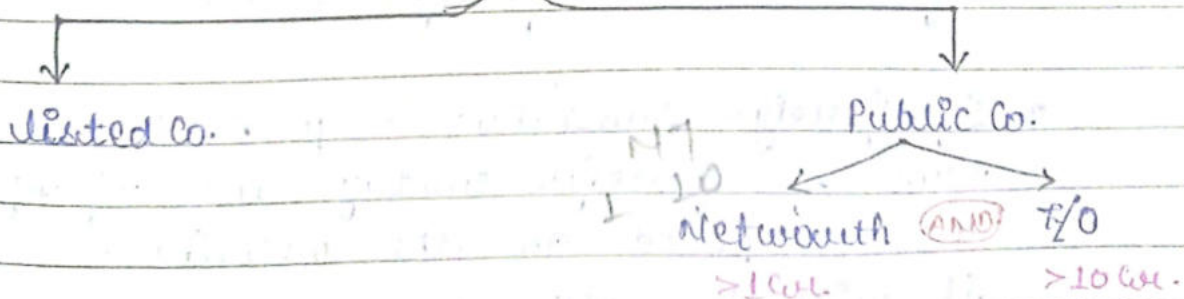 Listed Co.
Public Co.
N T
1 10
Networth AND T/O
>1 Cr. >10 Cr.